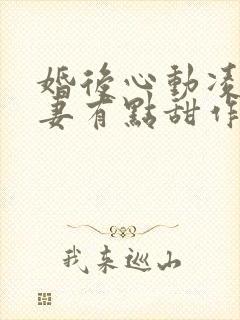 婚後心動凌
妻有點甜作
我來巡山